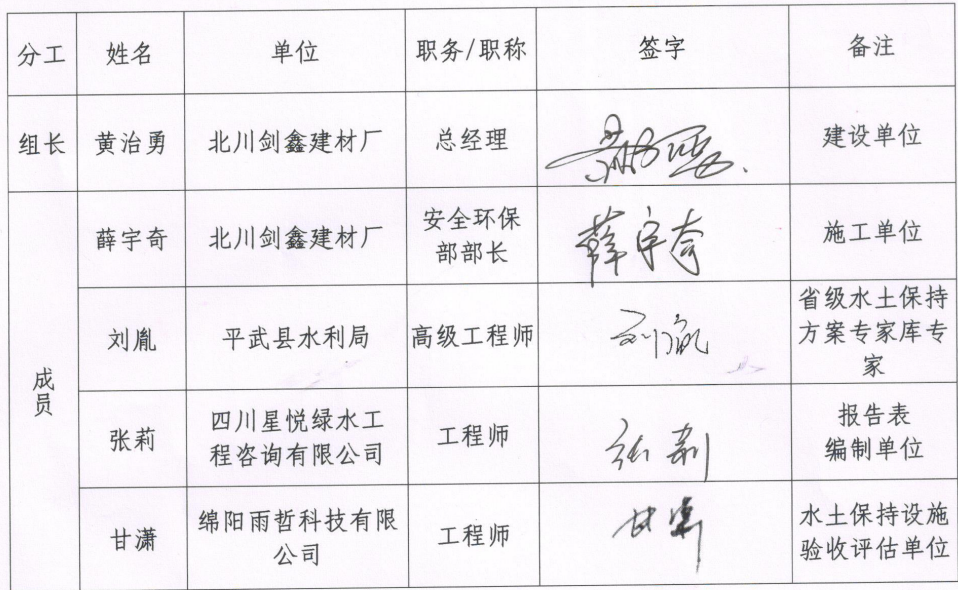 分工 姓名 单位 职务/职称 签字 备注
组长 黄治勇 北川剑鑫建材厂 总经理 建设单位
成员
薛宇奇 北川剑鑫建材厂 安全环保
部部长 薛宇奇 施工单位
刘胤 平武县水利局 高级工程师 刘胤 省级水土保持
方案专家库专
家
张莉 四川星悦绿水工
程咨询有限公司 工程师 张莉 报告表
编制单位
甘潇 绵阳雨哲科技有限
公司 工程师 甘潇 水土保持设施
验收评估单位